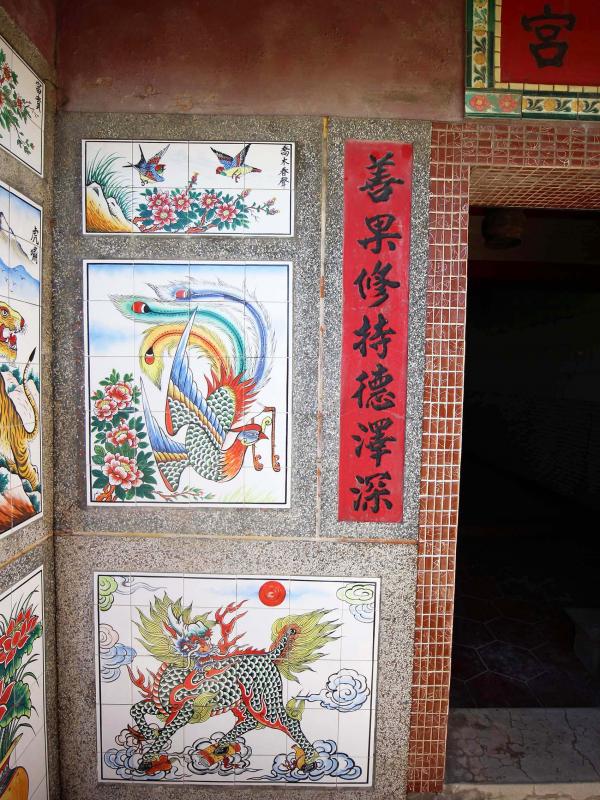 宮
善果修持德澤深
喬木春聲
富貴
虎嘯